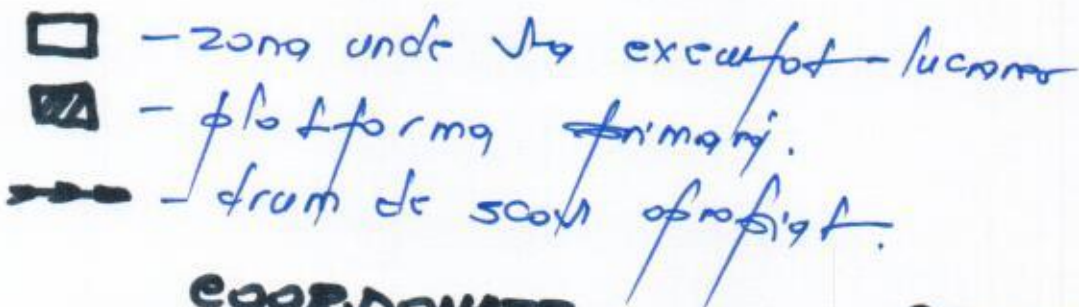 - zona unde s-a executat lucrarea
- platforma primară.
- drum de scos apropiat.
COORDONATE